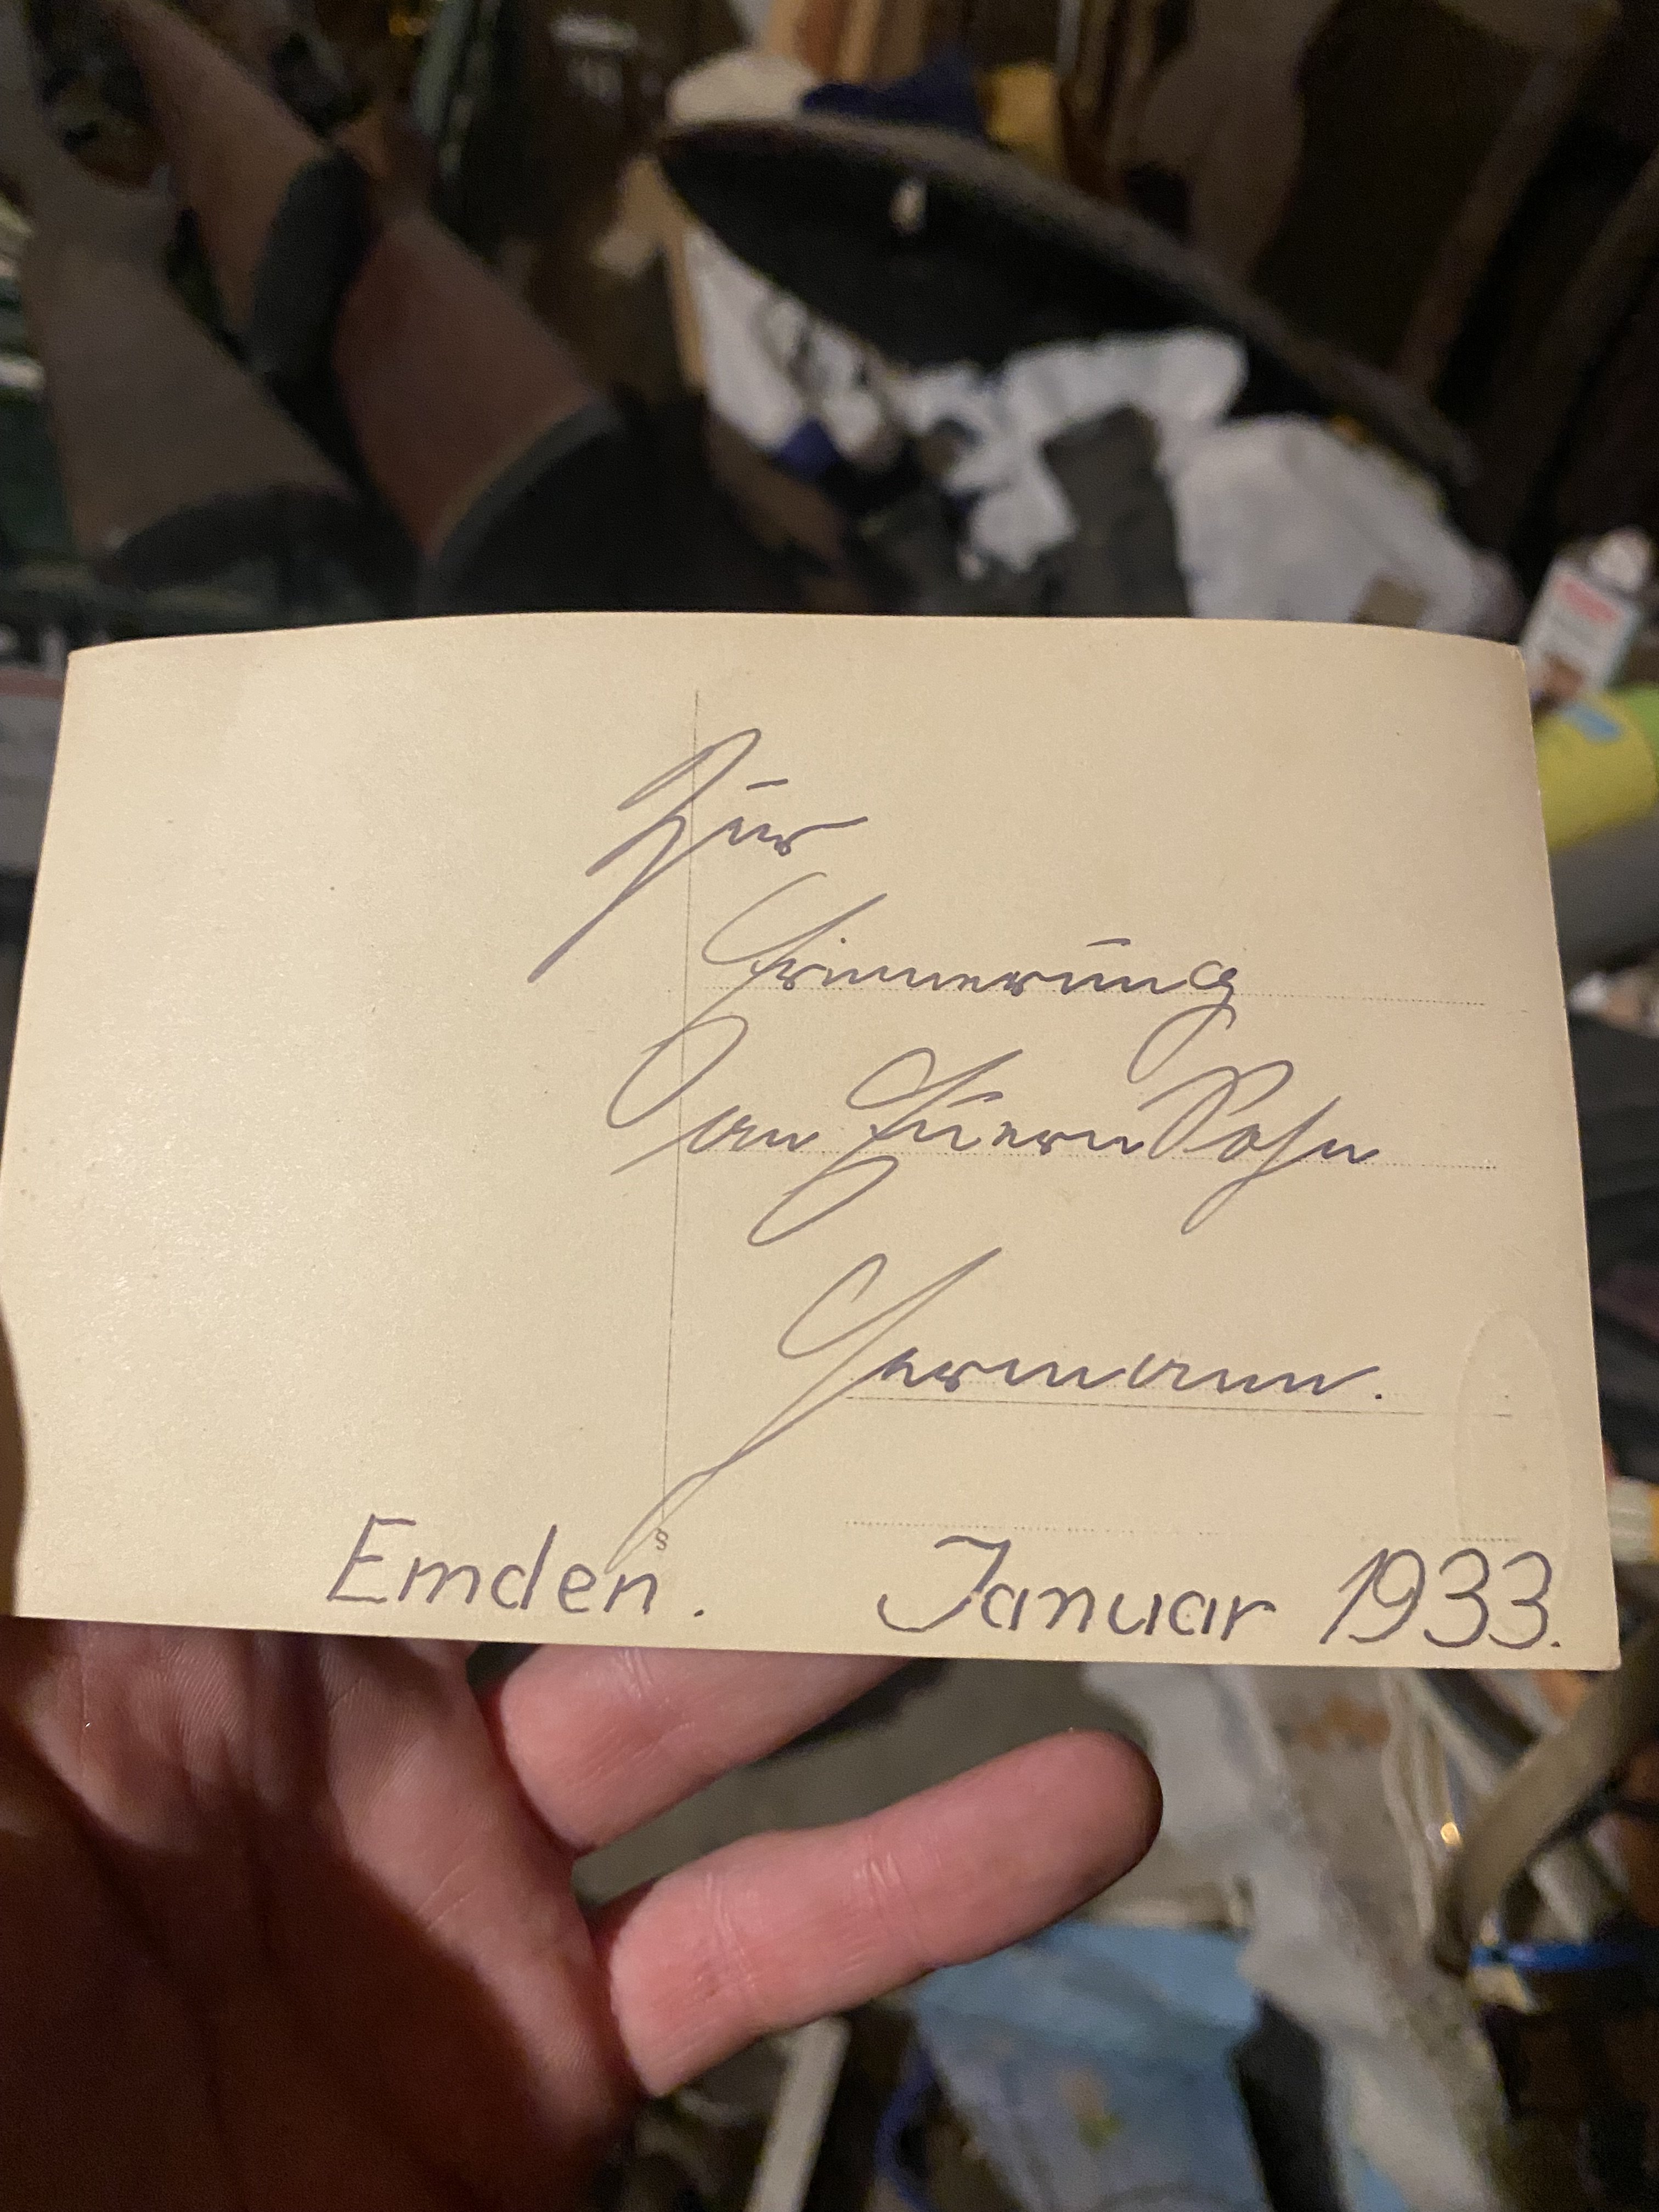 Zur
Erinnerung
an Euern Sohn
Hermann.
§
Emden. Januar 1933.